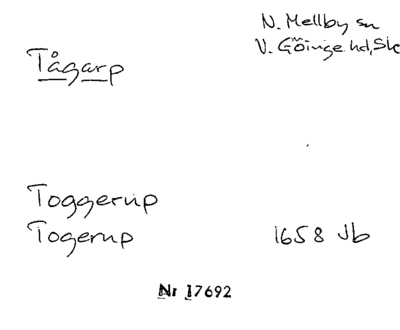 N. Mellby sn
V. Göinge hd, Sk
Tågarp
Toggerup
Togerup 1658 Jb
Nr 17692